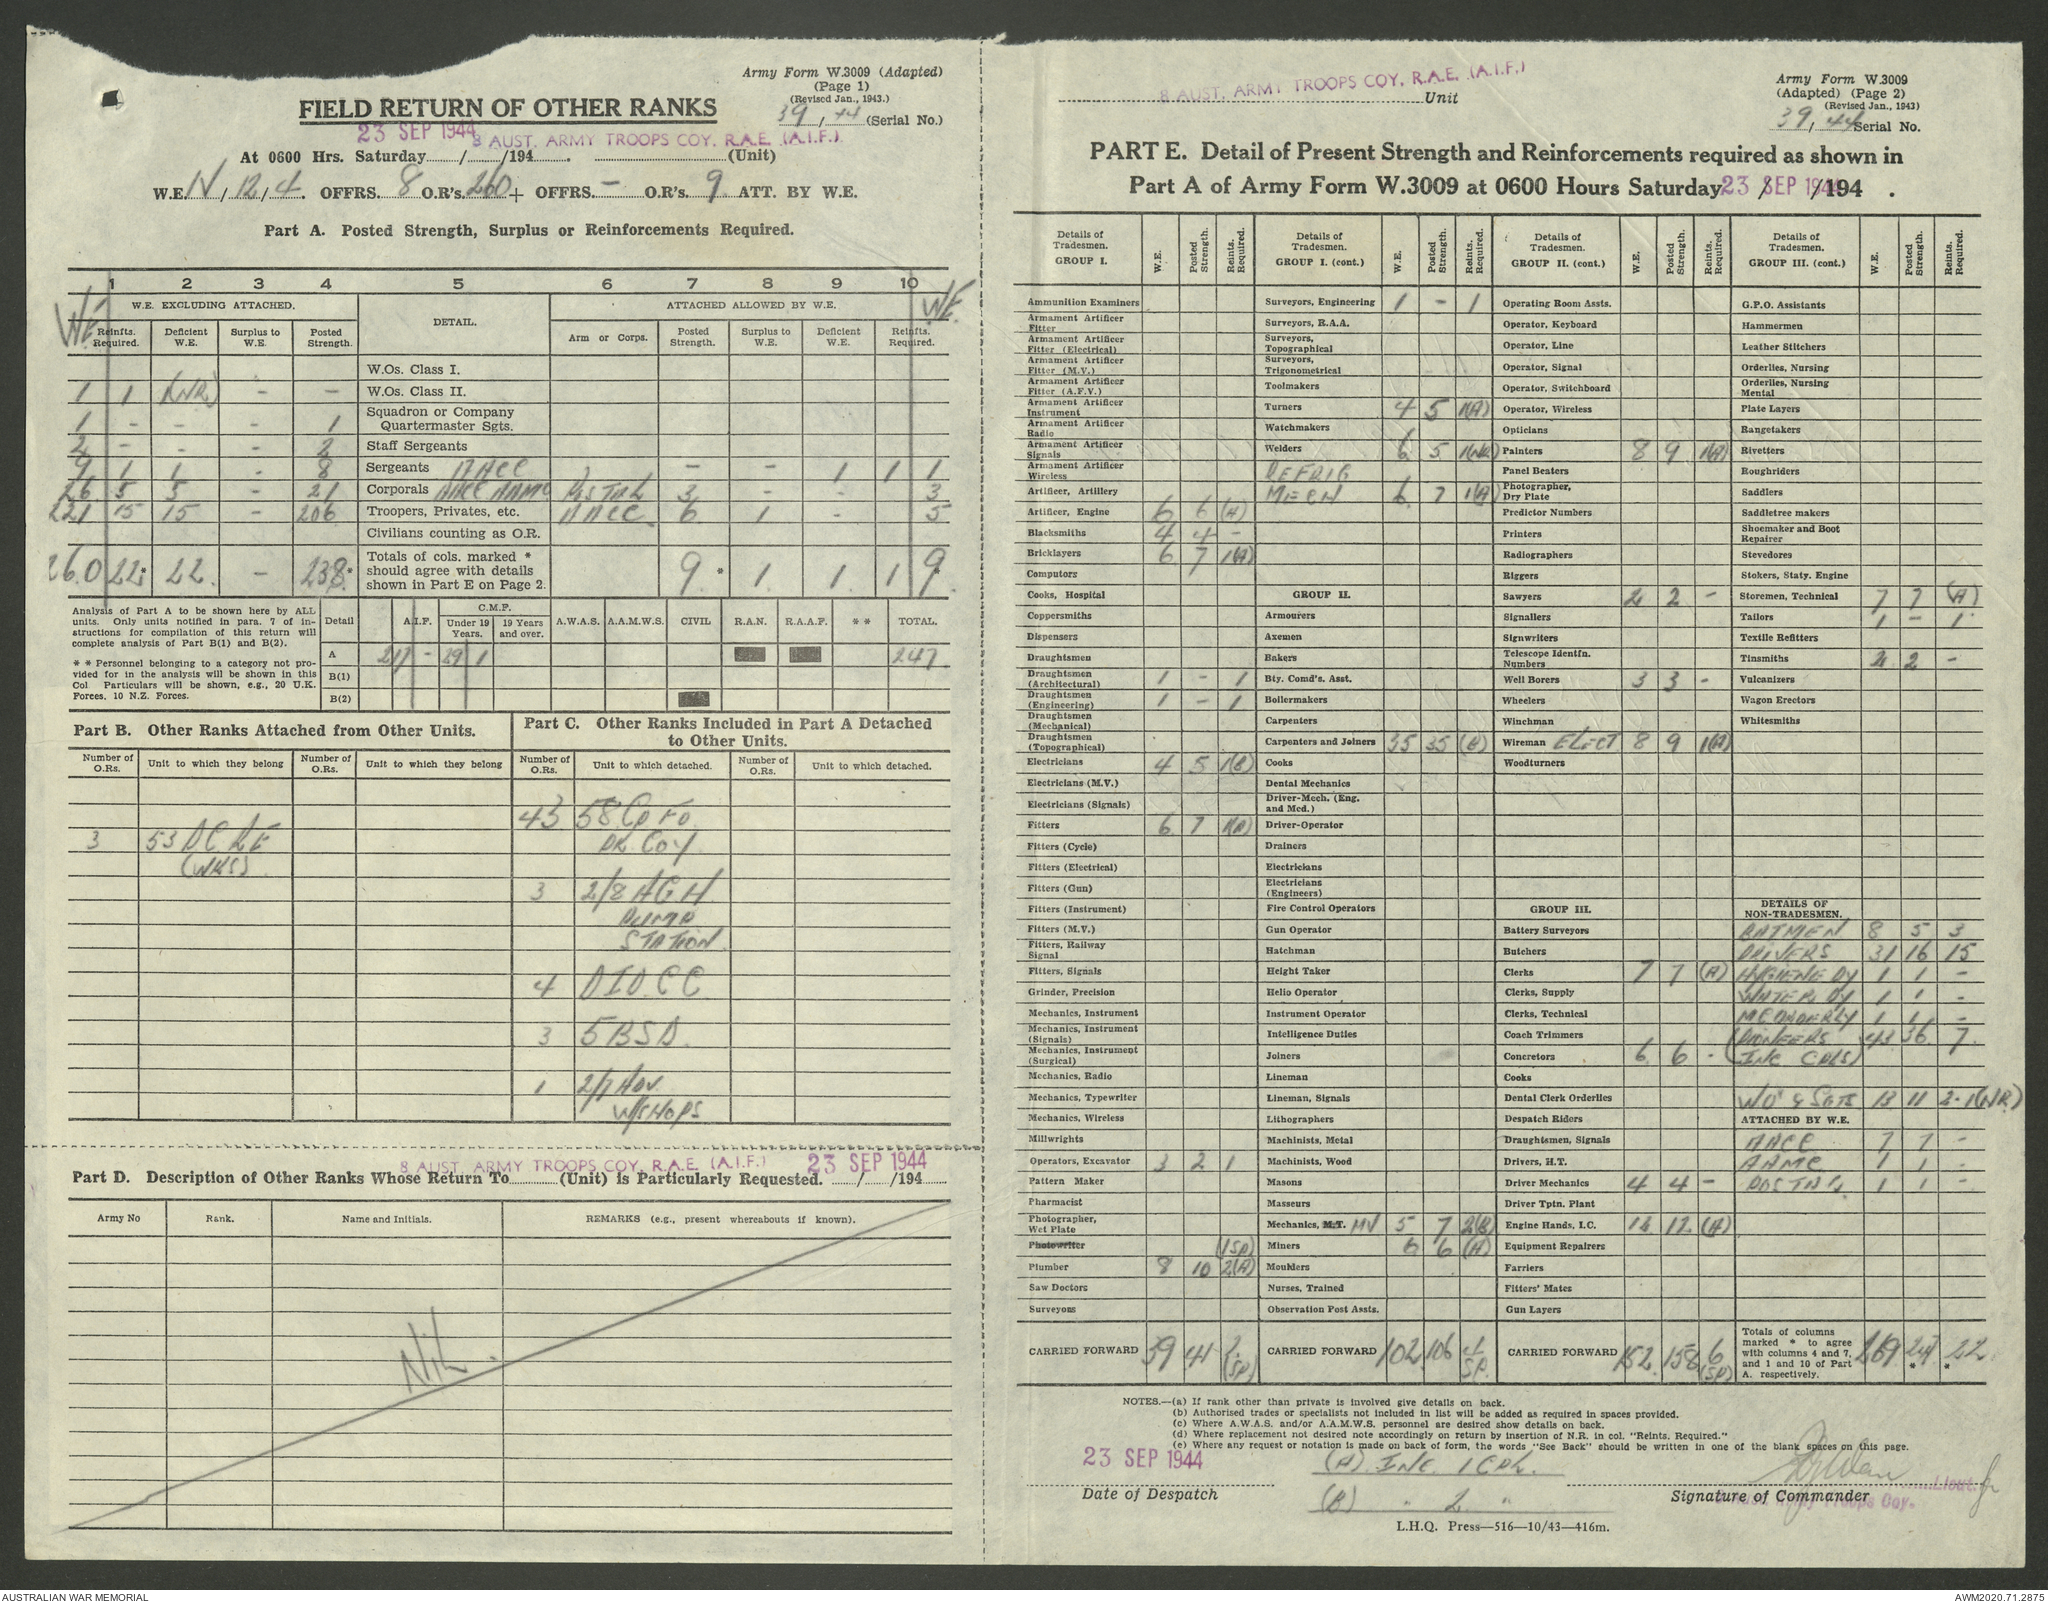 Army Form W.3009 (Adapted)
(Page 1)
(Revised Jan., 1943.)
FIELD RETURN OF OTHER RANKS
39, 44 (Serial No.)
23 SEP 1944 8 AUST. ARMY TROOPS COY. R.A.E. (A.I.F.)
At 0600 Hrs. Saturday / /194 . (Unit)
W.E. IV / 12 / 4. OFFRS. 8 O.R's. 260 + OFFRS. – O.R's. 9 ATT. BY W.E.
Part A. Posted Strength, Surplus or Reinforcements Required.
1 2 3 4 5 6 7 8 9 10
WE W.E. EXCLUDING ATTACHED. DETAIL. ATTACHED ALLOWED BY W.E. WE
Reinfts. Required. Deficient W.E. Surplus to W.E. Posted Strength. Arm or Corps. Posted Strength. Surplus to W.E. Deficient W.E. Reinfts. Required.
W.Os. Class I.
1 1 (NR) – – W.Os. Class II.
1 – – – 1 Squadron or Company Quartermaster Sgts.
2 – – – 2 Staff Sergeants
9 1 1 – 8 Sergeants AACC – – 1 1 1
26 5 5 – 21 Corporals AACC AAMC POSTAL 3 – – 3
221 15 15 – 206 Troopers, Privates, etc. AACC 6 1 – 5
Civilians counting as O.R.
260 22* 22 – 238* Totals of cols. marked * should agree with details shown in Part E on Page 2. 9 * 1 1 1 9*
Analysis of Part A to be shown here by ALL
units. Only units notified in para. 7 of in-
structions for compilation of this return will
complete analysis of Part B(1) and B(2).
* * Personnel belonging to a category not pro-
vided for in the analysis will be shown in this
Col Particulars will be shown, e.g., 20 U.K.
Forces, 10 N.Z. Forces.
Detail A.I.F. C.M.F. Under 19 Years. 19 Years and over. A.W.A.S. A.A.M.W.S. CIVIL R.A.N. R.A.A.F. * * TOTAL.
A 217 – 29 1 247
B(1)
B(2)
Part B. Other Ranks Attached from Other Units.
Number of O.Rs. Unit to which they belong Number of O.Rs. Unit to which they belong
3 53 DCRE
(WKS)
Part C. Other Ranks Included in Part A Detached
to Other Units.
Number of O.Rs. Unit to which detached. Number of O.Rs. Unit to which detached.
43 58 Cp Fd.
PK COY
3 2/8 AGH
PUMP
STATION
4 DIDCC
3 5 BSD
1 2/7 ADV.
W/SHOPS
8 AUST. ARMY TROOPS COY. R.A.E. (A.I.F.) 23 SEP 1944
Part D. Description of Other Ranks Whose Return To (Unit) is Particularly Requested. / /194
Army No Rank. Name and Initials. REMARKS (e.g., present whereabouts if known).
Nil.
8 AUST. ARMY TROOPS COY. R.A.E. (A.I.F.)
Unit
Army Form W.3009
(Adapted) (Page 2)
(Revised Jan., 1943)
39, 44 Serial No.
PART E. Detail of Present Strength and Reinforcements required as shown in
Part A of Army Form W.3009 at 0600 Hours Saturday 23 SEP 1944 / /194 .
Details of Tradesmen. GROUP I. W.E. Posted Strength. Reints. Required.
Ammunition Examiners
Armament Artificer Fitter
Armament Artificer Fitter (Electrical)
Armament Artificer Fitter (M.V.)
Armament Artificer Fitter (A.F.V.)
Armament Artificer Instrument
Armament Artificer Radio
Armament Artificer Signals
Armament Artificer Wireless
Artificer, Artillery
Artificer, Engine 6 6 (A)
Blacksmiths 4 4 –
Bricklayers 6 7 1(A)
Computors
Cooks, Hospital
Coppersmiths
Dispensers
Draughtsmen
Draughtsmen (Architectural) 1 – 1
Draughtsmen (Engineering) 1 – 1
Draughtsmen (Mechanical)
Draughtsmen (Topographical)
Electricians 4 5 1(B)
Electricians (M.V.)
Electricians (Signals)
Fitters 6 7 1(A)
Fitters (Cycle)
Fitters (Electrical)
Fitters (Gun)
Fitters (Instrument)
Fitters (M.V.)
Fitters, Railway Signal
Fitters, Signals
Grinder, Precision
Mechanics, Instrument
Mechanics, Instrument (Signals)
Mechanics, Instrument (Surgical)
Mechanics, Radio
Mechanics, Typewriter
Mechanics, Wireless
Millwrights
Operators, Excavator 3 2 1
Pattern Maker
Pharmacist
Photographer, Wet Plate
Photowriter (1 SP)
Plumber 8 10 2(A)
Saw Doctors
Surveyors
CARRIED FORWARD 39 41 2 (SP)
Details of Tradesmen. GROUP I. (cont.) W.E. Posted Strength. Reints. Required.
Surveyors, Engineering 1 – 1
Surveyors, R.A.A.
Surveyors, Topographical
Surveyors, Trigonometrical
Toolmakers
Turners 4 5 1(A)
Watchmakers
Welders 6 5 1(NR)
REFRIG
MECH 6 7 1(A)
GROUP II.
Armourers
Axemen
Bakers
Bty. Comd's. Asst.
Boilermakers
Carpenters
Carpenters and Joiners 35 35 (B)
Cooks
Dental Mechanics
Driver-Mech. (Eng. and Med.)
Driver-Operator
Drainers
Electricians
Electricians (Engineers)
Fire Control Operators
Gun Operator
Hatchman
Height Taker
Helio Operator
Instrument Operator
Intelligence Duties
Joiners
Lineman
Lineman, Signals
Lithographers
Machinists, Metal
Machinists, Wood
Masons
Masseurs
Mechanics, M.T. MV 5 7 2(B)
Miners 6 6 (A)
Moulders
Nurses, Trained
Observation Post Assts.
CARRIED FORWARD 102 106 4 SP.
Details of Tradesmen. GROUP II. (cont.) W.E. Posted Strength. Reints. Required.
Operating Room Assts.
Operator, Keyboard
Operator, Line
Operator, Signal
Operator, Switchboard
Operator, Wireless
Opticians
Painters 8 9 1(A)
Panel Beaters
Photographer, Dry Plate
Predictor Numbers
Printers
Radiographers
Riggers
Sawyers 2 2 –
Signallers
Signwriters
Telescope Identfn. Numbers
Well Borers 3 3 –
Wheelers
Winchman
Wireman ELECT 8 9 1(A)
Woodturners
GROUP III.
Battery Surveyors
Butchers
Clerks 7 7 (A)
Clerks, Supply
Clerks, Technical
Coach Trimmers
Concretors 6 6 –
Cooks
Dental Clerk Orderlies
Despatch Riders
Draughtsmen, Signals
Drivers, H.T.
Driver Mechanics 4 4 –
Driver Tptn. Plant
Engine Hands, I.C. 12 12 (A)
Equipment Repairers
Farriers
Fitters' Mates
Gun Layers
CARRIED FORWARD 152 158 6 (SP)
Details of Tradesmen. GROUP III. (cont.) W.E. Posted Strength. Reints. Required.
G.P.O. Assistants
Hammermen
Leather Stitchers
Orderlies, Nursing
Orderlies, Nursing Mental
Plate Layers
Rangetakers
Rivetters
Roughriders
Saddlers
Saddletree makers
Shoemaker and Boot Repairer
Stevedores
Stokers, Staty. Engine
Storemen, Technical 7 7 (A)
Tailors 1 – 1
Textile Refitters
Tinsmiths 2 2 –
Vulcanizers
Wagon Erectors
Whitesmiths
DETAILS OF NON-TRADESMEN.
BATMEN 8 5 3
DRIVERS 31 16 15
HYGIENE DY 1 1 –
WATER DY 1 1 –
MED ORDERLY 1 1 –
(PIONEERS 43 36 7
(INC CPLS)
WO & SGTS 13 11 2-1(NR)
ATTACHED BY W.E.
AACC 7 7 –
AAMC 1 1 –
POSTAL 1 1 –
Totals of columns marked * to agree with columns 4 and 7, and 1 and 10 of Part A. respectively. 269 247 * * 22
NOTES.—(a) If rank other than private is involved give details on back.
(b) Authorised trades or specialists not included in list will be added as required in spaces provided.
(c) Where A.W.A.S. and/or A.A.M.W.S. personnel are desired show details on back.
(d) Where replacement not desired note accordingly on return by insertion of N.R. in col. "Reints. Required."
(e) Where any request or notation is made on back of form, the words "See Back" should be written in one of the blank spaces on this page.
23 SEP 1944
Date of Despatch
(A) INC. 1 CPL.
(B) " 2 "
Lieut.
Signature of Commander
Army Troops Coy.
L.H.Q. Press—516—10/43—416m.
AUSTRALIAN WAR MEMORIAL
AWM2020.71.2875